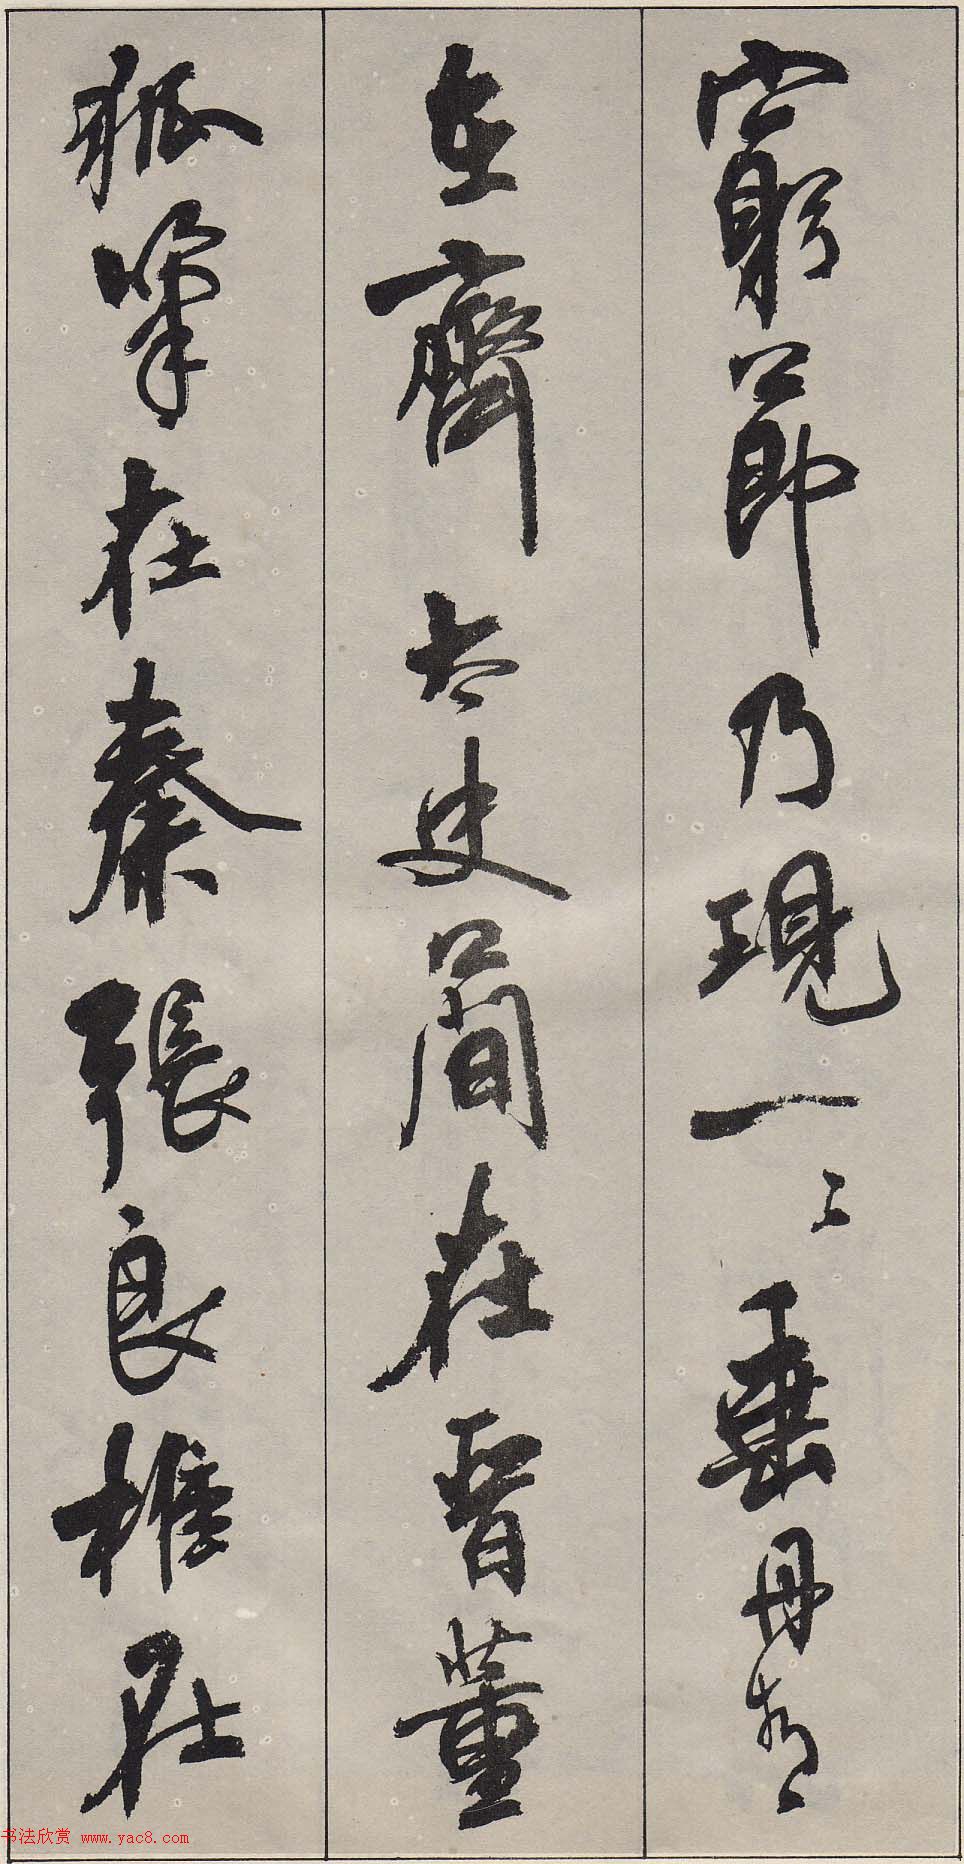 窮節乃現一〻垂丹青
在齊太史簡在晉董
狐筆在秦張良椎在
书法欣赏 www.yac8.com